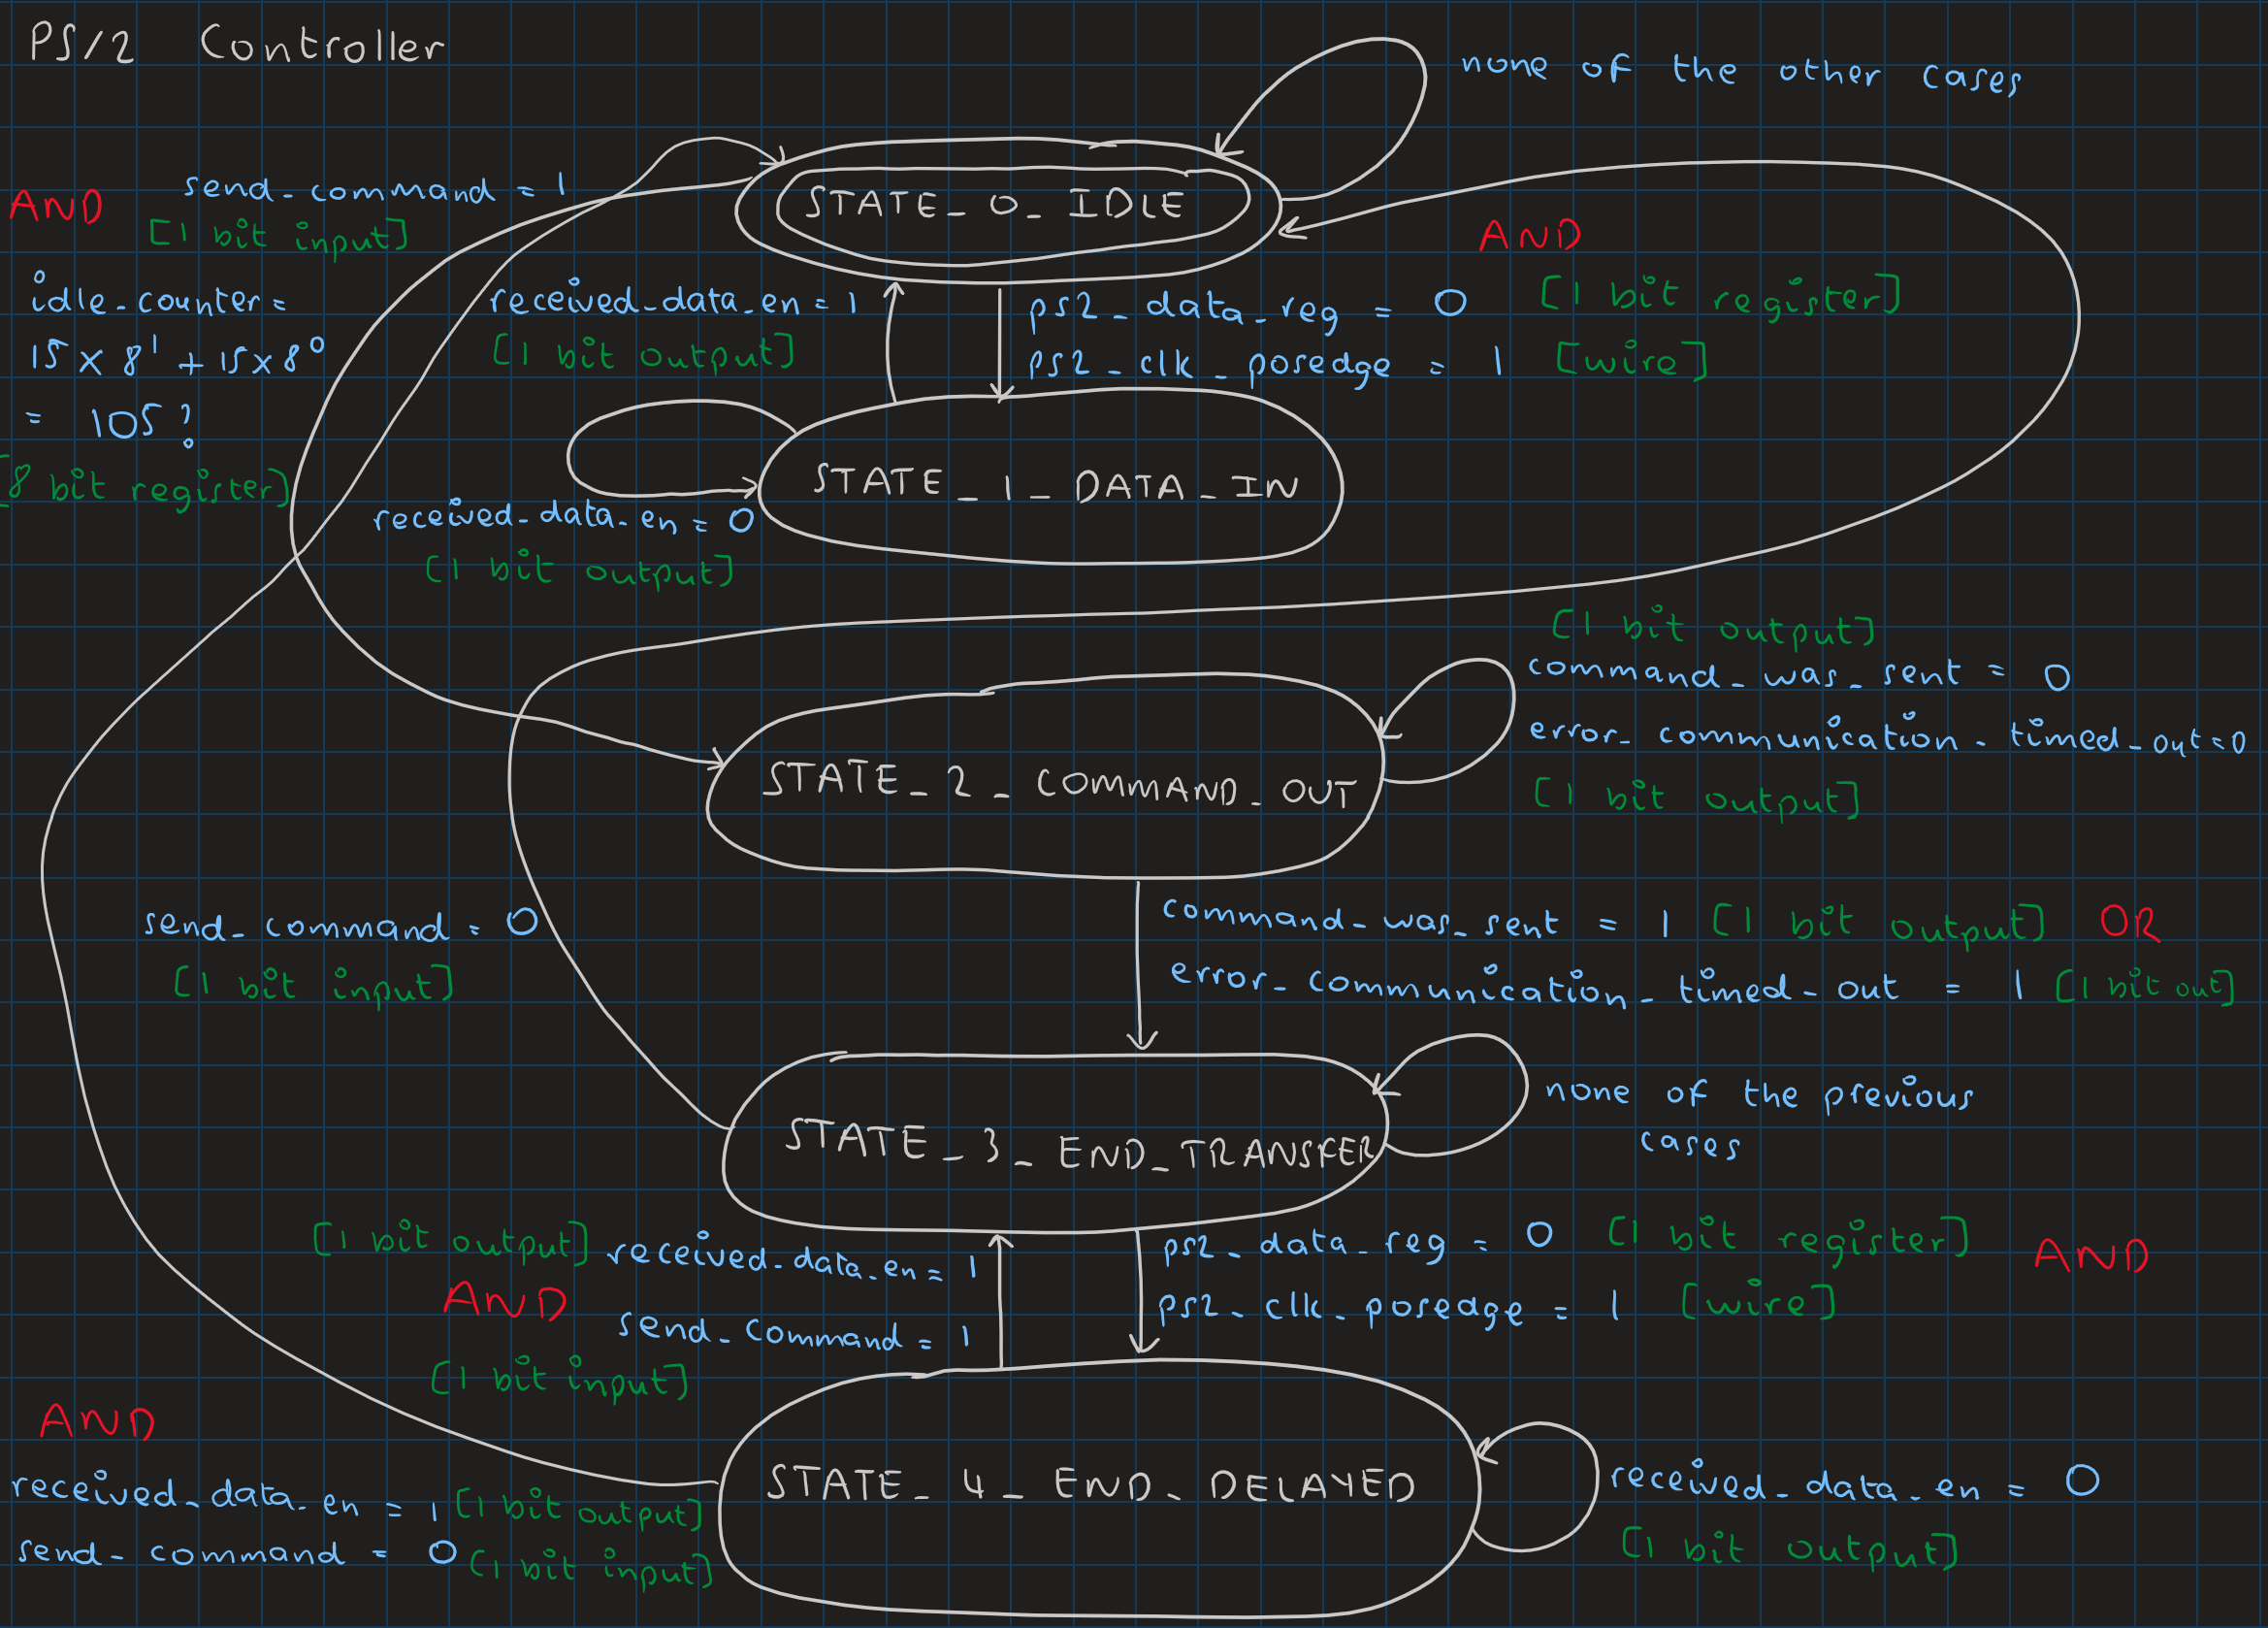 PS/2 Controller
none of the other cases
AND
send_command = 1
[1 bit input]
idle_counter =
15 x 8¹ + 15 x 8⁰
= 105?
[8 bit register]
STATE_0_IDLE
AND
received_data_en = 1
[1 bit output]
ps2_data_reg = 0 [1 bit register]
ps2_clk_posedge = 1 [wire]
STATE_1_DATA_IN
received_data_en = 0
[1 bit output]
[1 bit output]
command_was_sent = 0
error_communication_timed_out=0
[1 bit output]
STATE_2_COMMAND_OUT
send_command = 0
[1 bit input]
command_was_sent = 1 [1 bit output] OR
error_communication_timed_out = 1 [1 bit out]
none of the previous
cases
STATE_3_END_TRANSFER
[1 bit output] received_data_en = 1
AND
send_command = 1
[1 bit input]
ps2_data_reg = 0 [1 bit register]
AND
ps2_clk_posedge = 1 [wire]
AND
received_data_en = 1 [1 bit output]
send_command = 0 [1 bit input]
STATE_4_END_DELAYED
received_data_en = 0
[1 bit output]